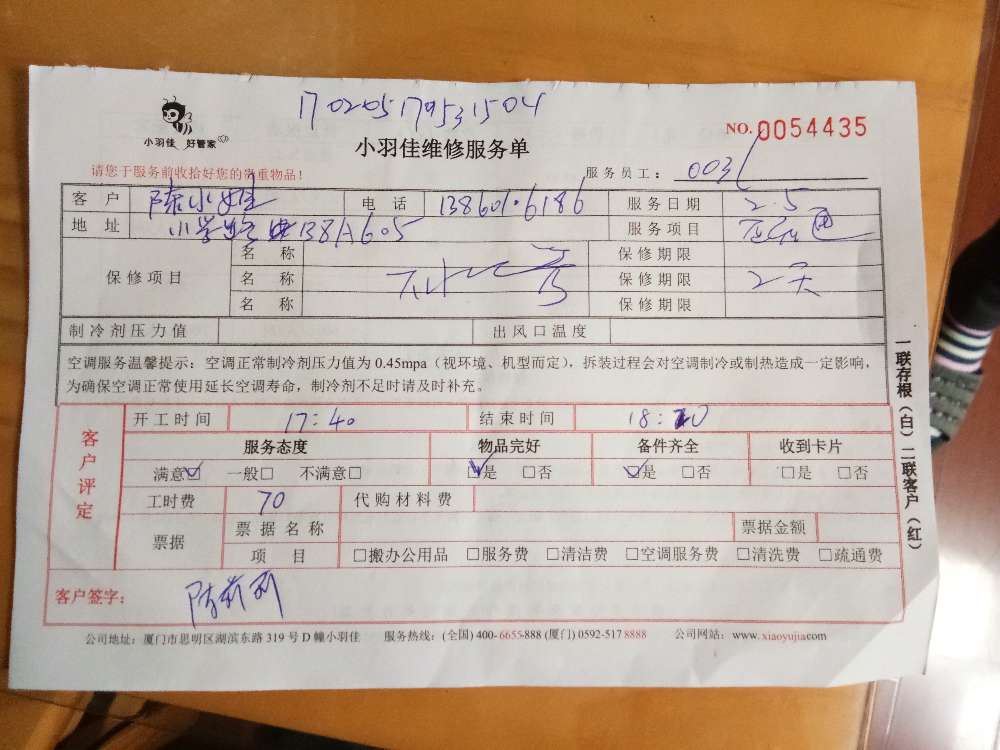 17020517953 1504
小羽佳 好管家
小羽佳维修服务单
NO. 0054435
请您于服务前收拾好您的贵重物品！
服务员工： 0031
客 户 陈小姐 电 话 服务日期 2.5
地 址 服务项目
保修项目 名 称 保修期限
名 称 保修期限 2天
名 称 保修期限
制冷剂压力值 出风口温度
空调服务温馨提示：空调正常制冷剂压力值为 0.45mpa（视环境、机型而定），拆装过程会对空调制冷或制热造成一定影响，
为确保空调正常使用延长空调寿命，制冷剂不足时请及时补充。
客户评定
开工时间 17:40 结束时间 18:20
服务态度 物品完好 备件齐全 收到卡片
满意☑ 一般□ 不满意□ ☑是 □否 ☑是 □否 □是 □否
工时费 70 代购材料费
票据 票据名称 票据金额
项 目 □搬办公用品 □服务费 □清洁费 □空调服务费 □清洗费 □疏通费
客户签字：
一联存根（白）二联客户（红）
公司地址：厦门市思明区湖滨东路 319 号 D 幢小羽佳 服务热线：(全国) 400-6655-888 (厦门) 0592-517 8888 公司网站：www.xiaoyujia.com